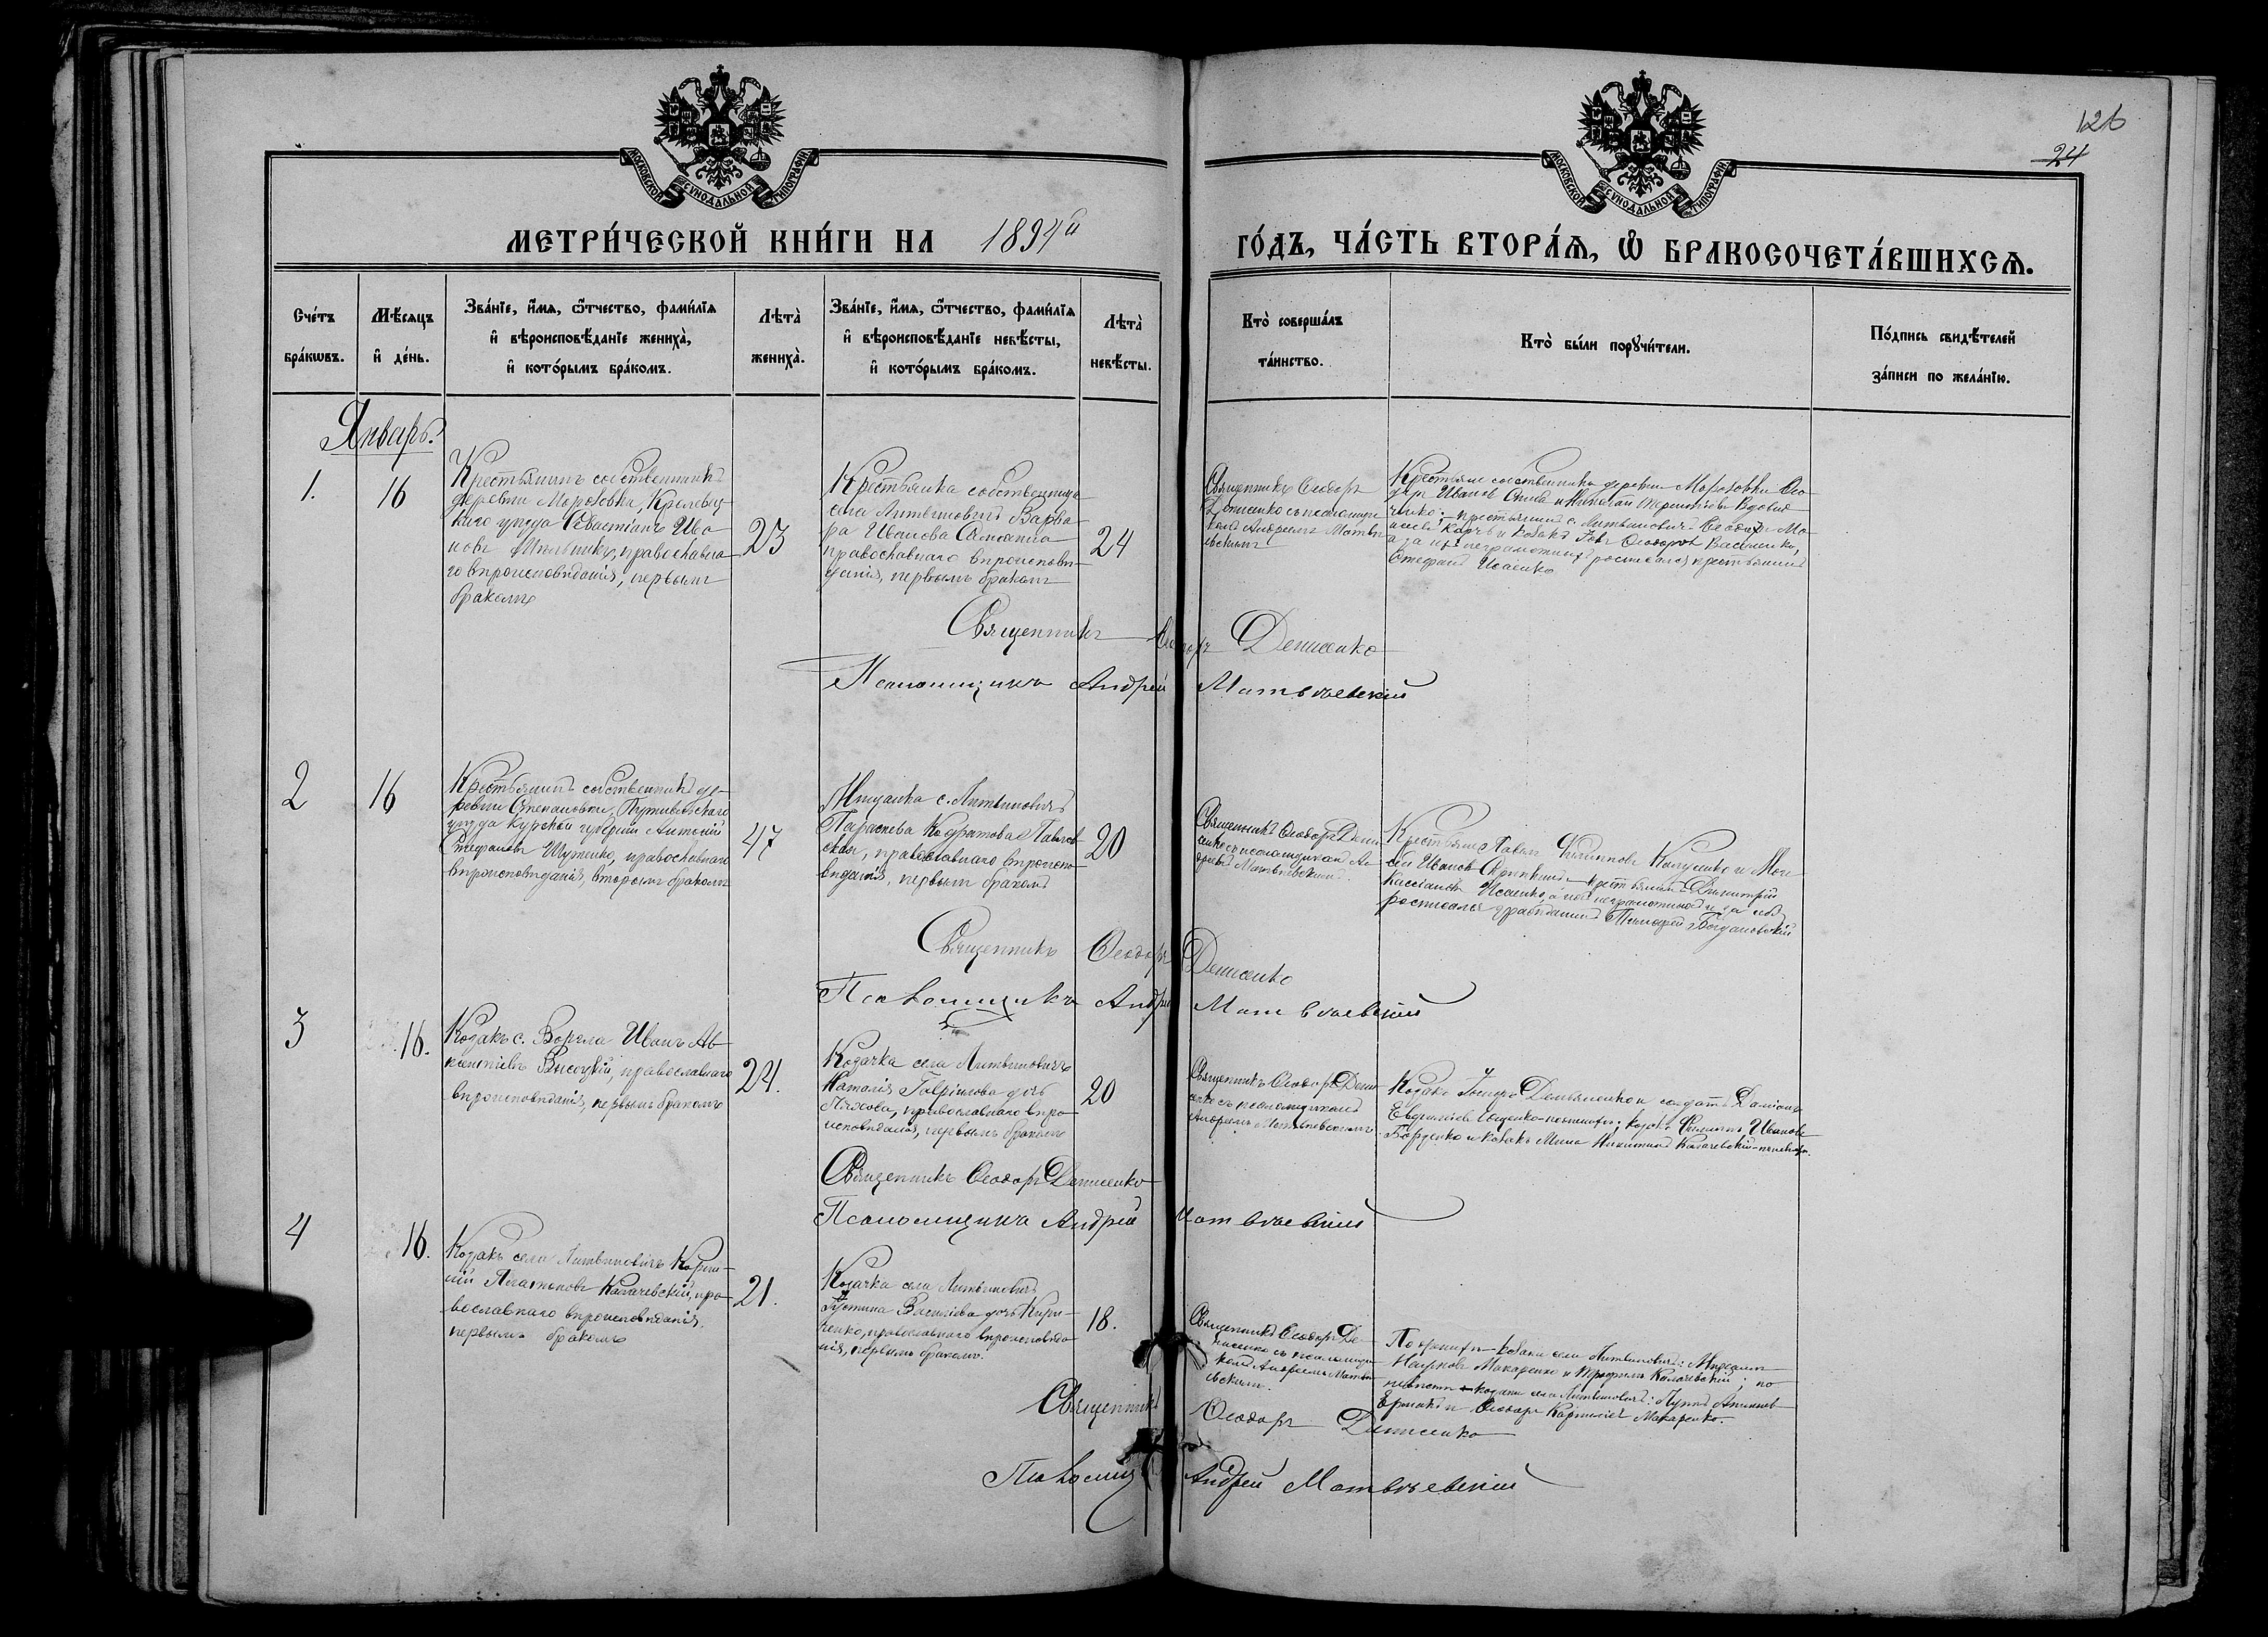 126
24
МОСКОВСКОЙ СѴНОДАЛЬНОЙ ТИПОГРАФІИ
МОСКОВСКОЙ СѴНОДАЛЬНОЙ ТИПОГРАФІИ
МЕТРИ́ЧЕСКОЙ КНИ́ГИ НА 1894й
ГО́ДЪ, ЧА́СТЬ ВТОРА́Я, Ѡ БРАКОСОЧЕТА́ВШИХСЯ.
Сче́тъ бра́кѡвъ.
Мѣ́сяцъ и҆ де́нь.
Зва́нїе, и҆́мѧ, ѻ҆́тчество, фами́лїѧ
и҆ вѣроисповѣ́данїе жениха̀,
и҆ кото́рымъ бра́комъ.
Лѣта̀
жениха̀.
Зва́нїе, и҆́мѧ, ѻ҆́тчество, фами́лїѧ
и҆ вѣроисповѣ́данїе невѣ́сты,
и҆ кото́рымъ бра́комъ.
Лѣта̀
невѣ́сты.
Кто̀ соверша́лъ
та́инство.
Кто̀ бы́ли порꙋчи́тели.
По́дпись свидѣ́телей
за́писи по жела́нїю.
Январь.
1.
16
Крестьянинъ собственникъ
деревни Морозовка, Кролевец-
каго уѣзда Севастіанъ Ива-
новъ православна-
го вѣроисповѣданія, первымъ
бракомъ
23
Крестьянка собственница
села Литвиновичъ Варва-
ра Иванова
православнаго вѣроисповѣ-
данія, первымъ бракомъ
24
Священникъ Ѳеодоръ
Денисенко съ псаломщи-
комъ Андреемъ Матвѣ-
евскимъ
Крестьяне собственники деревни Морозовки Ѳео-
доръ Ивановъ и Николай
крестьянинъ с. Литвиновичъ Ѳеодоръ
и козакъ Ѳеодоровъ Василенко,
а за ихъ неграмотныхъ росписался крестьянинъ
Стефанъ Исаенко
Священникъ Ѳеодоръ Денисенко
Псаломщикъ Андрей Матвѣевскій
2
16
Крестьянинъ собственникъ де-
ревни Степановки, Путивльскаго
уѣзда Курской губерніи Антоній
Стефановъ Шутенко, православнаго
вѣроисповѣданія, вторымъ бракомъ
47
Мѣщанка с. Литвиновичъ
Параскева Кодратова Павлов-
ская, православнаго вѣроиспо-
вѣданія, первымъ бракомъ
20
Священникъ Ѳеодоръ Дени-
сенко съ псаломщикомъ Ан-
дреемъ Матвѣевскимъ.
Крестьяне Павелъ Филипповъ и Мои-
сей Ивановъ крестьянинъ Димитрій
Кассіановъ Исаенко, а за ихъ неграмотныхъ
росписался Тимофей Богдановскій
Священникъ Ѳеодоръ Денисенко
Псаломщикъ Андрей Матвѣевскій
3
16.
Козакъ с. Воргла Иванъ Ав-
ксентіевъ Высоцкій, православнаго
вѣроисповѣданія, первымъ бракомъ
24.
Козачка села Литвиновичъ
Наталія Гавріилова дочь
православнаго вѣро-
исповѣданія, первымъ бракомъ
20
Священникъ Ѳеодоръ Дени-
сенко съ псаломщикомъ
Андреемъ Матвѣевскимъ
Козакъ и солдатъ Даміанъ
козакъ Филиппъ Ивановъ
и козакъ Мина Никитинъ Калачевскій
Священникъ Ѳеодоръ Денисенко
Псаломщикъ Андрей Матвѣевскій
4
16.
Козакъ села Литвиновичъ Корни-
лій Платоновъ Калачевскій, пра-
вославнаго вѣроисповѣданія,
первымъ бракомъ
21.
Козачка села Литвиновичъ
Іустина Василіева дочь Кири-
ченко, православнаго вѣроисповѣда-
нія, первымъ бракомъ.
18.
Священникъ Ѳеодоръ Де-
нисенко съ псаломщи-
комъ Андреемъ Матвѣ-
евскимъ.
По женихѣ козаки села Литвиновичъ: Михаилъ
Наумовъ Макаренко и Трофимъ Калачевскій; по
невѣстѣ козаки села Литвиновичъ:
и Ѳеодоръ Корниліевъ Макаренко.
Священникъ Ѳеодоръ Денисенко
Псаломщ Андрей Матвѣевскій